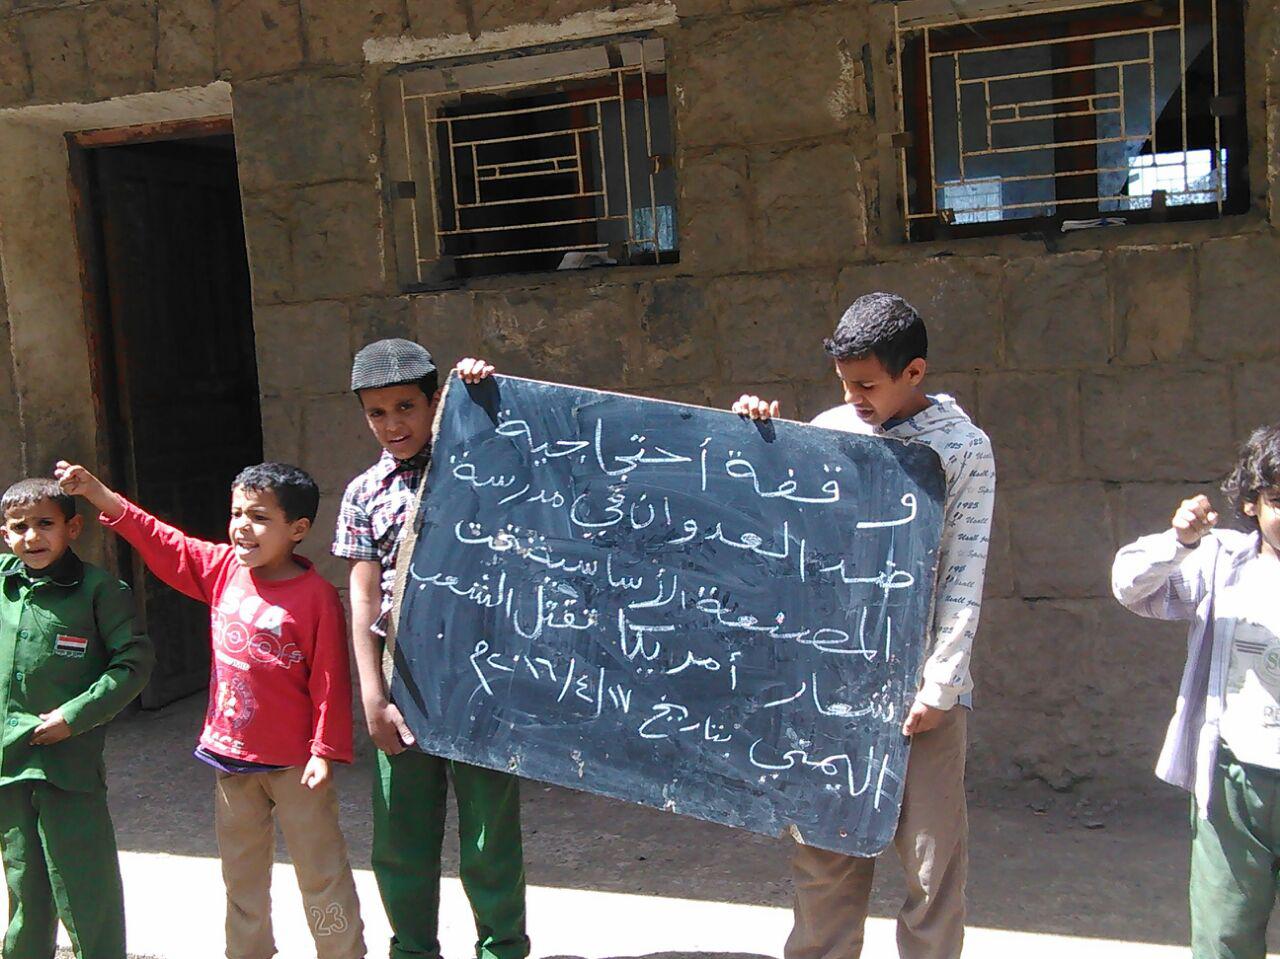 وقفة أحتجاجية
ضد العدوان في مدرسة
المصنعة الأساسية تحت
شعار أمريكا تقتل الشعب
اليمني بتاريخ ١٧/٤/٢٠١٦م
23